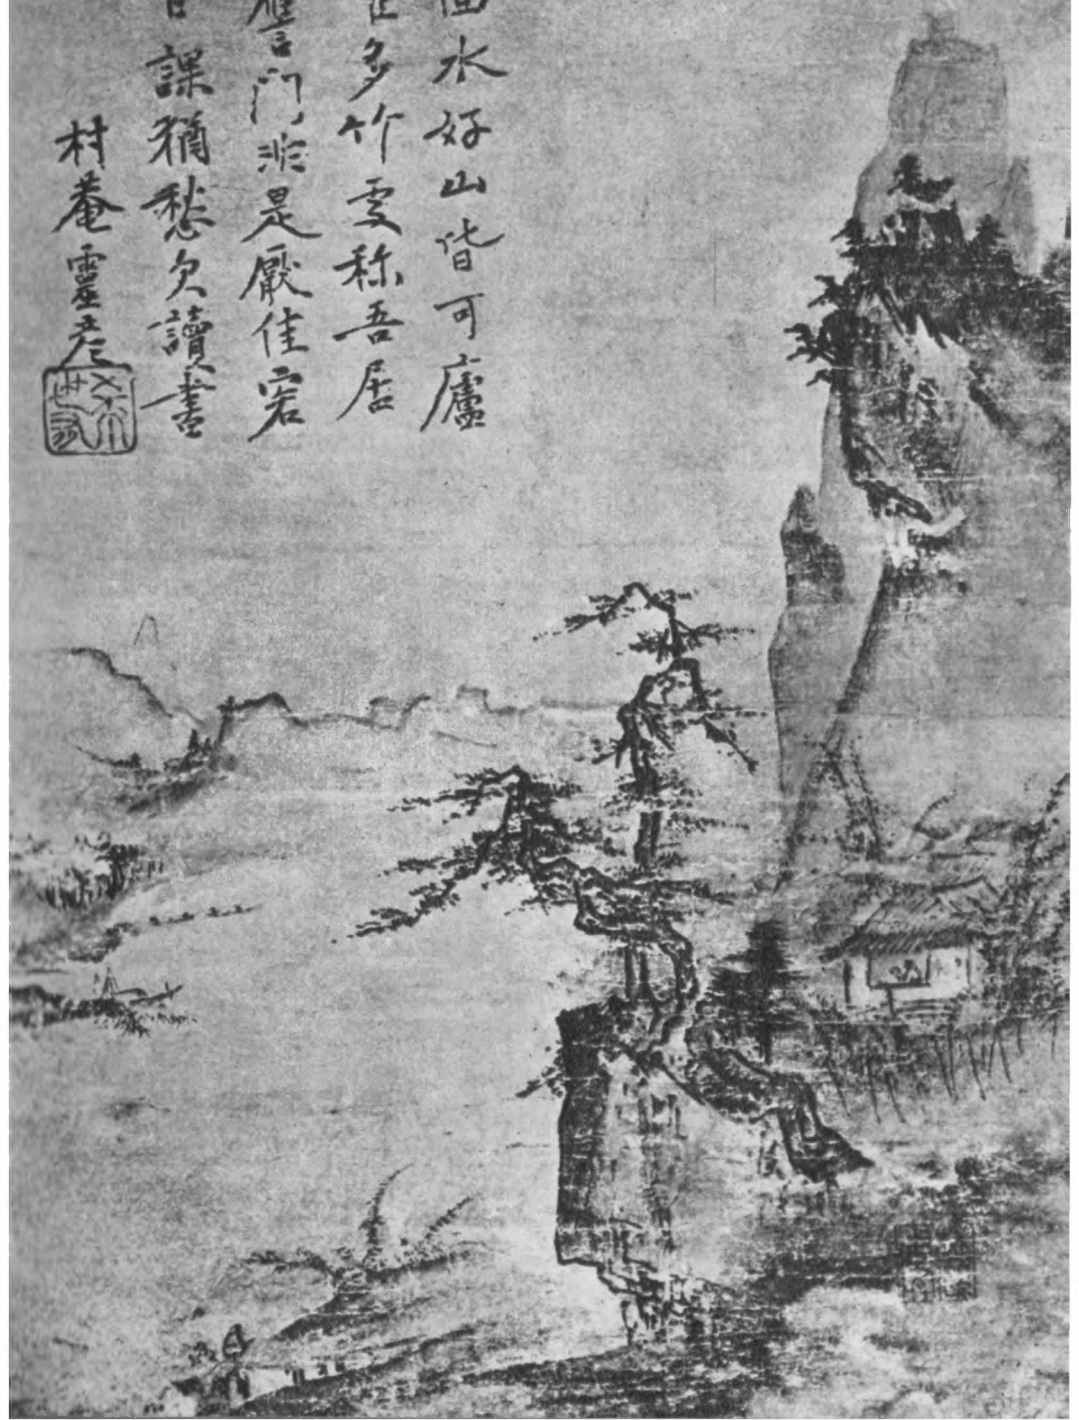 水好山皆可廬
多竹處称吾居
譍門非是厭佳客
課猶愁欠讀書
村菴靈彦